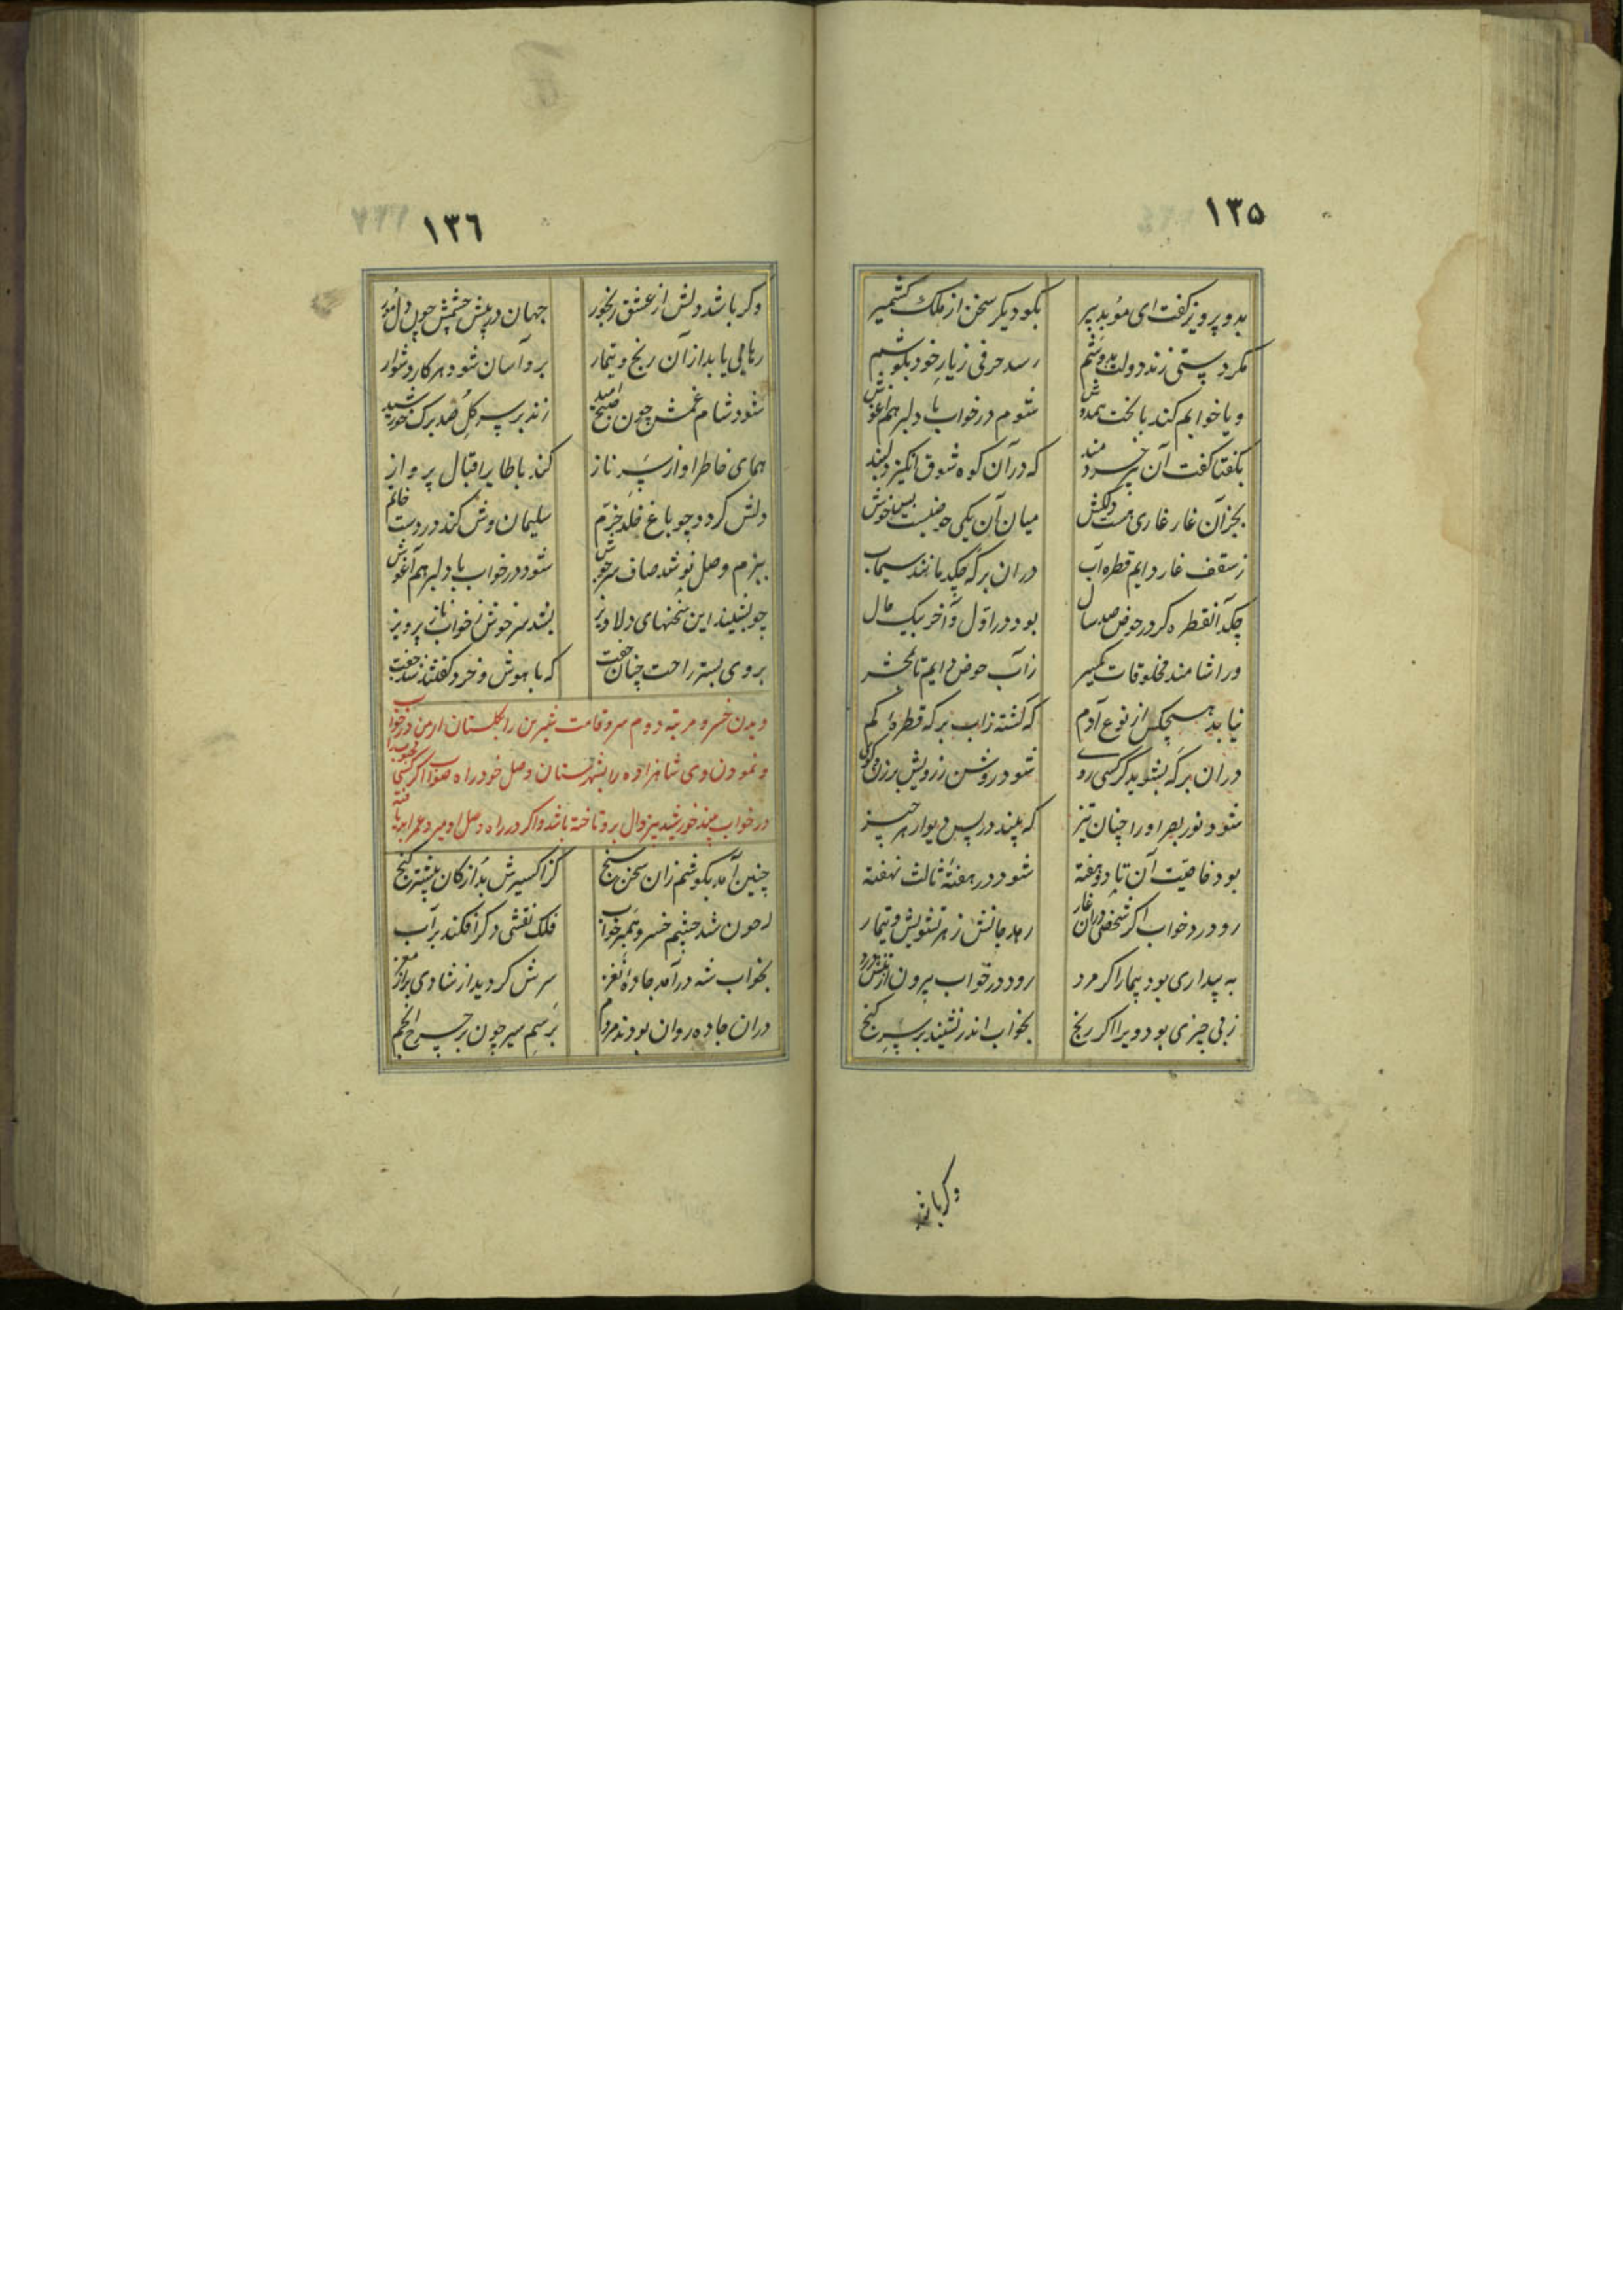 ۱۳۵
بدو پرویز گفت ای موبد پیر بگو دیگر سخن از ملک کشمیر
مگر دستی زند دولت بدوشم رسد حرفی ز یار خود بگوشم
و یا خوابم کند با بخت همدوش شوم در خواب با دلبر هم آغوش
بگفتا گفت آن پیر خردمند که در آن کوه شوق انگیز دلبند
بجز آن غار غاری هست دلکش میان آن یکی حوضیست بس خوش
ز سقف غار دایم قطره آب در آن برکه چکد مانند سیماب
چکد آنقطره گر در حوض صد سال بود در اول و آخر بیک حال
ورآشامند مخلوقات یکسر زآب حوض دایم تا بمحشر
نیابد هیچکس از نوع آدم که گشته زاب برکه قطره کم
در آن برکه بشوید گر کسی روی شود روشن ز رویش برزن و کوی
شود نور بصر او را چنان تیز که بیند در پس دیوار هر چیز
بود خاصیت آن تا دو هفته شود در هفته ثالث نهفته
رود در خواب اگر شخصی در آن غار رهد جانش ز هر تشویش و تیمار
به بیداری بود بیمار اگر مرد رود در خواب بیرون از تنش درد
ز بی چیزی بود ویرا اگر رنج بخواب اندر نشیند بر سر گنج
وگر باشد
۱۳۶
وگر باشد دلش از عشق رنجور جهان در پیش چشمش چون دل مور
رهایی یابد از آن رنج و تیمار بر و آسان شود هر کار دشوار
شود شام غمش چون صبح امید زند بر سر گل صد برگ خورشید
همای خاطر او از سر ناز کند با طایر اقبال پرواز
دلش گردد چو باغ خلد خرم سلیمان وش کند در دست خاتم
ببزم وصل نوشد صاف سرجوش شود در خواب با دلبر هم آغوش
چو بشنید این سخنهای دلاویز بشد سرخوش ز خواب ناز پرویز
بروی بستر راحت چنان خفت که با هوش و خرد گفتند شد جفت
دیدن خسرو مرتبه دوم سرو قامت شیرین را بگلستان ارمن در خواب
و نمودن وی شاهزاده را بشهرستان وصل خود راه صواب اگر کسی محبوب را
در خواب بیند خورشید بیزوال بر و تاخته باشد و اگر در راه وصل او میرد عمر ابد یافته
چنین آمد بگوشم زان سخن سنج کز اکسیرش بد از کان بیشتر گنج
که چون شد چشم خسرو همبر خواب فلک نقشی دگر افکند بر آب
بخواب شه درآمد جاده نغز سرش گردید از شادی پر از مغز
در آن جاده روان بودند مردم برسم سیر چون بر چرخ انجم